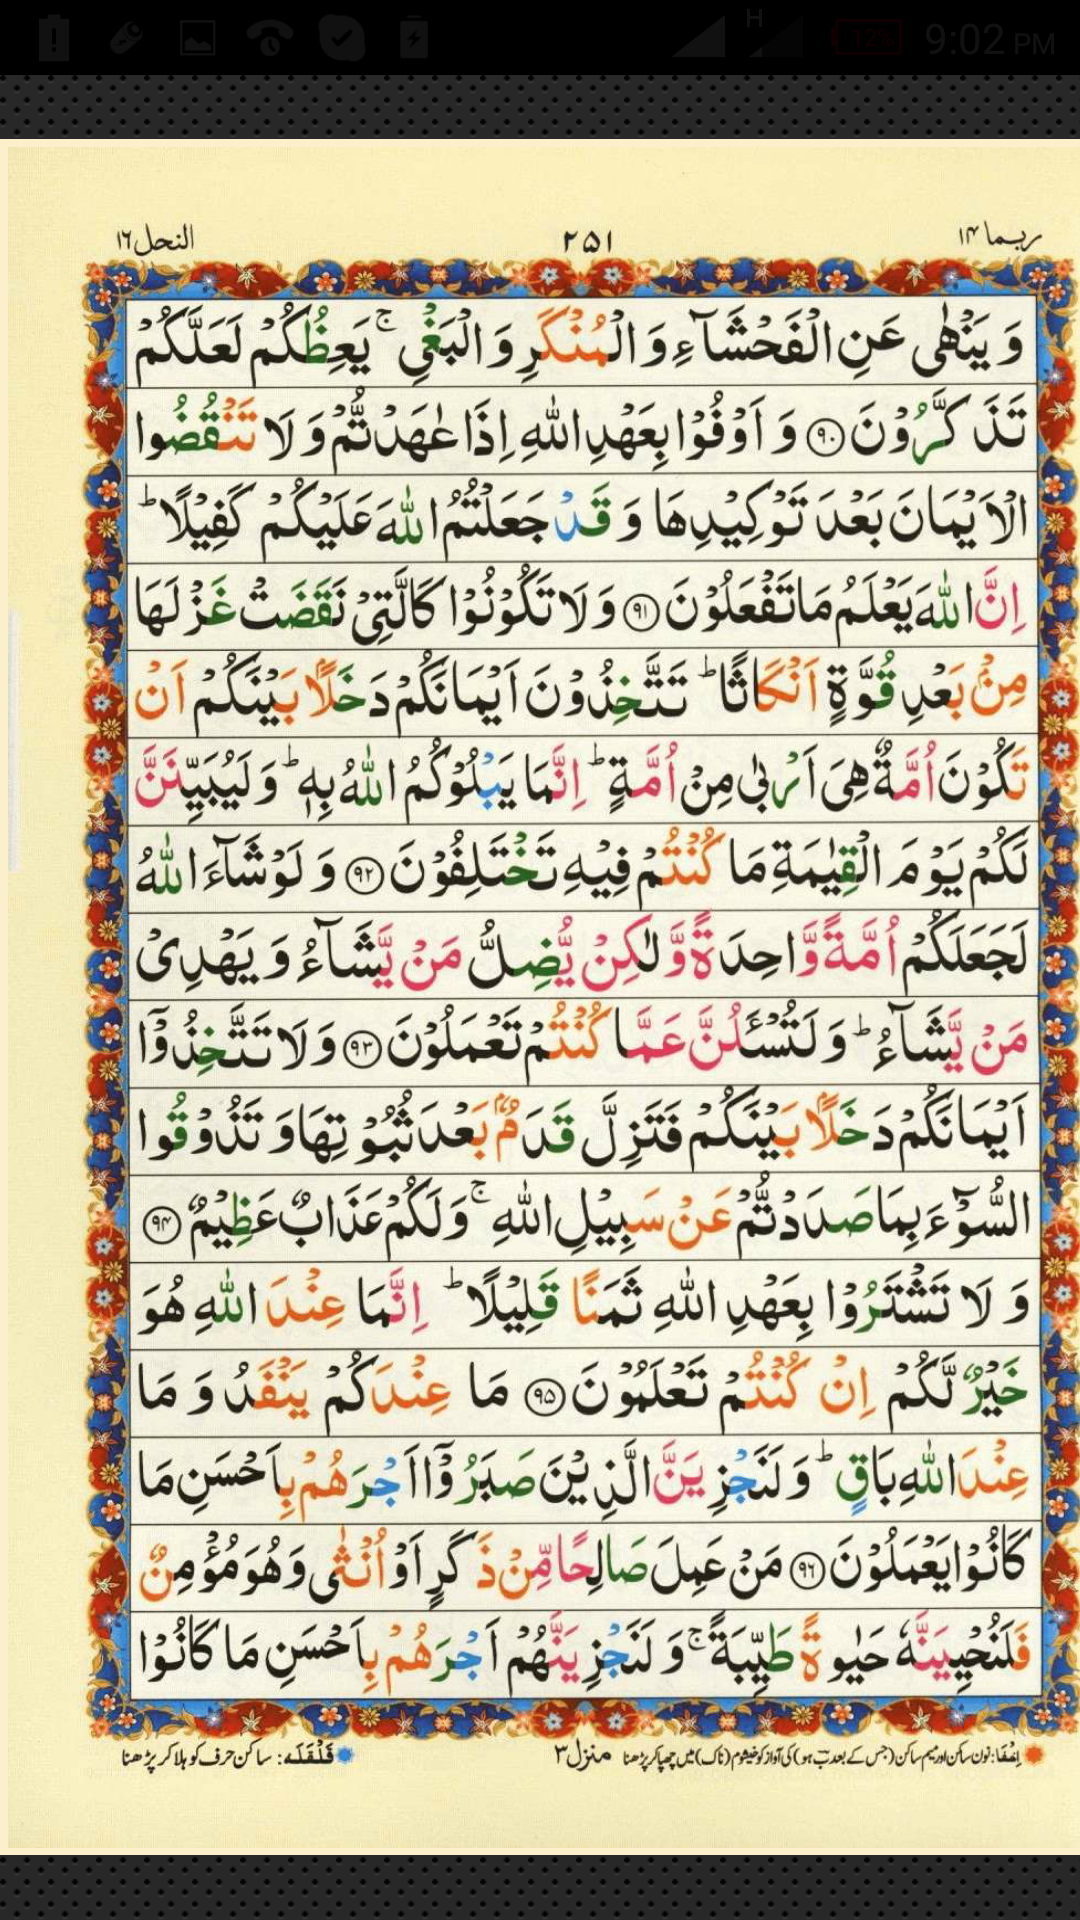 12% H 9:02 PM
ربما ۱۴ ۲۵۱ النحل ۱۶
وَ یَنْهٰی عَنِ الْفَحْشَآءِ وَ الْمُنْكَرِ وَ الْبَغْیِ ۚ یَعِظُكُمْ لَعَلَّكُمْ
تَذَكَّرُوْنَ ﴿۹۰﴾ وَ اَوْفُوْا بِعَهْدِ اللّٰهِ اِذَا عٰهَدْتُّمْ وَ لَا تَنْقُضُوا
الْاَیْمَانَ بَعْدَ تَوْكِیْدِهَا وَ قَدْ جَعَلْتُمُ اللّٰهَ عَلَیْكُمْ كَفِیْلًا ؕ
اِنَّ اللّٰهَ یَعْلَمُ مَا تَفْعَلُوْنَ ﴿۹۱﴾ وَ لَا تَكُوْنُوْا كَالَّتِیْ نَقَضَتْ غَزْلَهَا
مِنْۢ بَعْدِ قُوَّةٍ اَنْكَاثًا ؕ تَتَّخِذُوْنَ اَیْمَانَكُمْ دَخَلًۢا بَیْنَكُمْ اَنْ
تَكُوْنَ اُمَّةٌ هِیَ اَرْبٰی مِنْ اُمَّةٍ ؕ اِنَّمَا یَبْلُوْكُمُ اللّٰهُ بِهٖ ؕ وَ لَیُبَیِّنَنَّ
لَكُمْ یَوْمَ الْقِیٰمَةِ مَا كُنْتُمْ فِیْهِ تَخْتَلِفُوْنَ ﴿۹۲﴾ وَ لَوْ شَآءَ اللّٰهُ
لَجَعَلَكُمْ اُمَّةً وَّاحِدَةً وَّلٰكِنْ یُّضِلُّ مَنْ یَّشَآءُ وَ یَهْدِیْ
مَنْ یَّشَآءُ ؕ وَ لَتُسْـَٔلُنَّ عَمَّا كُنْتُمْ تَعْمَلُوْنَ ﴿۹۳﴾ وَ لَا تَتَّخِذُوْۤا
اَیْمَانَكُمْ دَخَلًۢا بَیْنَكُمْ فَتَزِلَّ قَدَمٌۢ بَعْدَ ثُبُوْتِهَا وَ تَذُوْقُوا
السُّوْٓءَ بِمَا صَدَدْتُّمْ عَنْ سَبِیْلِ اللّٰهِ ۚ وَ لَكُمْ عَذَابٌ عَظِیْمٌ ﴿۹۴﴾
وَ لَا تَشْتَرُوْا بِعَهْدِ اللّٰهِ ثَمَنًا قَلِیْلًا ؕ اِنَّمَا عِنْدَ اللّٰهِ هُوَ
خَیْرٌ لَّكُمْ اِنْ كُنْتُمْ تَعْلَمُوْنَ ﴿۹۵﴾ مَا عِنْدَكُمْ یَنْفَدُ وَ مَا
عِنْدَ اللّٰهِ بَاقٍ ؕ وَ لَنَجْزِیَنَّ الَّذِیْنَ صَبَرُوْۤا اَجْرَهُمْ بِاَحْسَنِ مَا
كَانُوْا یَعْمَلُوْنَ ﴿۹۶﴾ مَنْ عَمِلَ صَالِحًا مِّنْ ذَكَرٍ اَوْ اُنْثٰی وَ هُوَ مُؤْمِنٌ
فَلَنُحْیِیَنَّهٗ حَیٰوةً طَیِّبَةً ۚ وَ لَنَجْزِیَنَّهُمْ اَجْرَهُمْ بِاَحْسَنِ مَا كَانُوْا
اِخفَا: نون ساکن اور میم ساکن (جس کے بعد ب ہو) کی آواز کو خیشوم (ناک) میں چھپا کر پڑھنا منزل ۳ قَلْقَلَه: ساکن حرف کو ہلا کر پڑھنا